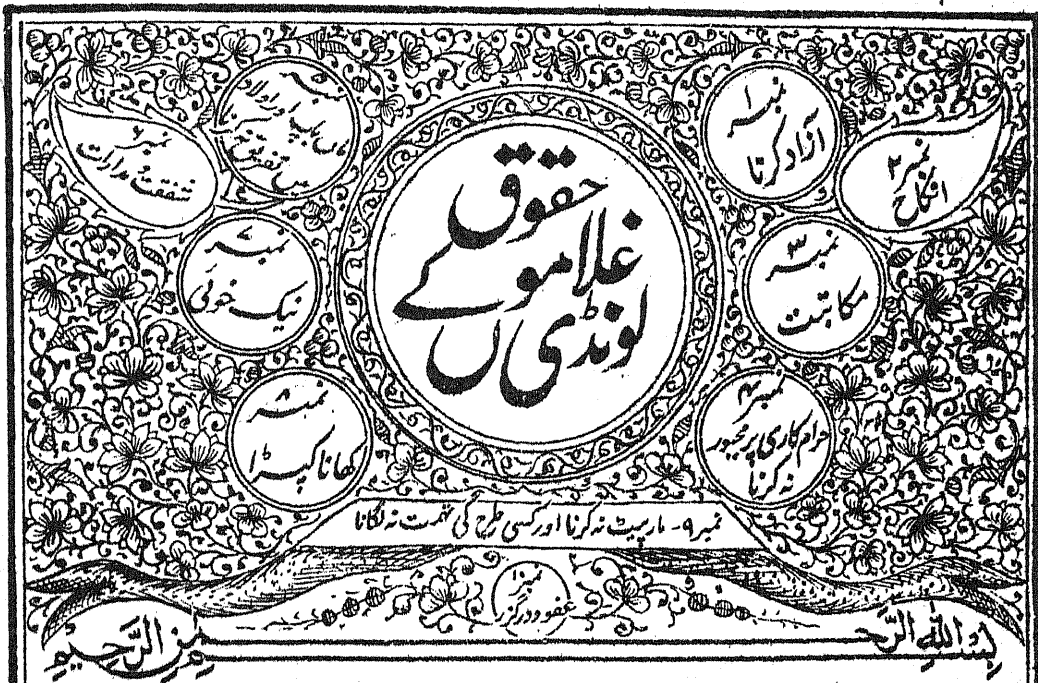 حقوق
غلاموں کے
لونڈی
نمبر ۱
آزاد کرنا
نمبر ۲
انکاح
نمبر ۳
مکاتبت
نمبر ۴
حرام کاری پر مجبور
نہ کرنا
نمبر ۵
ماں باپ اور اولاد
میں تفریق
نمبر ۶
شفقت مدارات
نمبر ۷
نیک خوئی
نمبر ۸
کھانا کپڑا
نمبر ۹۔ مار پیٹ نہ کرنا اور کسی طرح کی تہمت نہ لگانا
نمبر ۱۰
عفو و درگزر
بسم اللہ الرحمن الرحیم